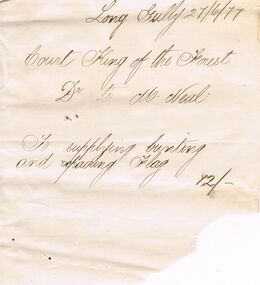 Long Gully 27/6/77
Court King of the Forest
Dr to M. Neal
To supplying bunting
and repairing Flag
12/-